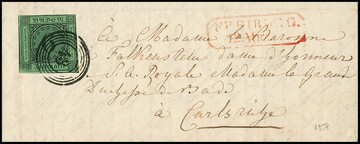 BADEN
FREIBURG.
à Madame la Baronne
Falkenstein dame d'honneur
S. A. Royale Madame la Grand
Duchesse de Bade
à Carlsruhe
1857